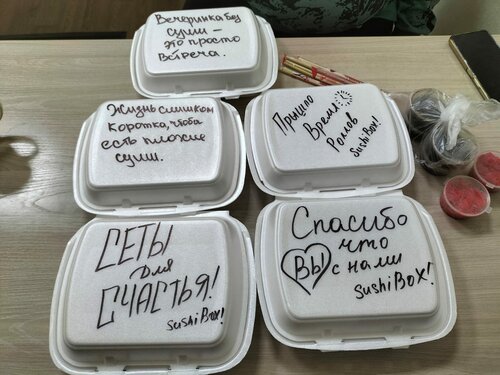 Вечеринка без
суши –
это просто
встреча.
Жизнь слишком
коротка, чтоба
есть плохие
суши.
Пришло
Время
Роллов
SushiBox!
СЕТЫ
для
СЧАСТЬЯ!
SushiBox!
Спасибо
что
ВЫ с нами
SushiBOX!